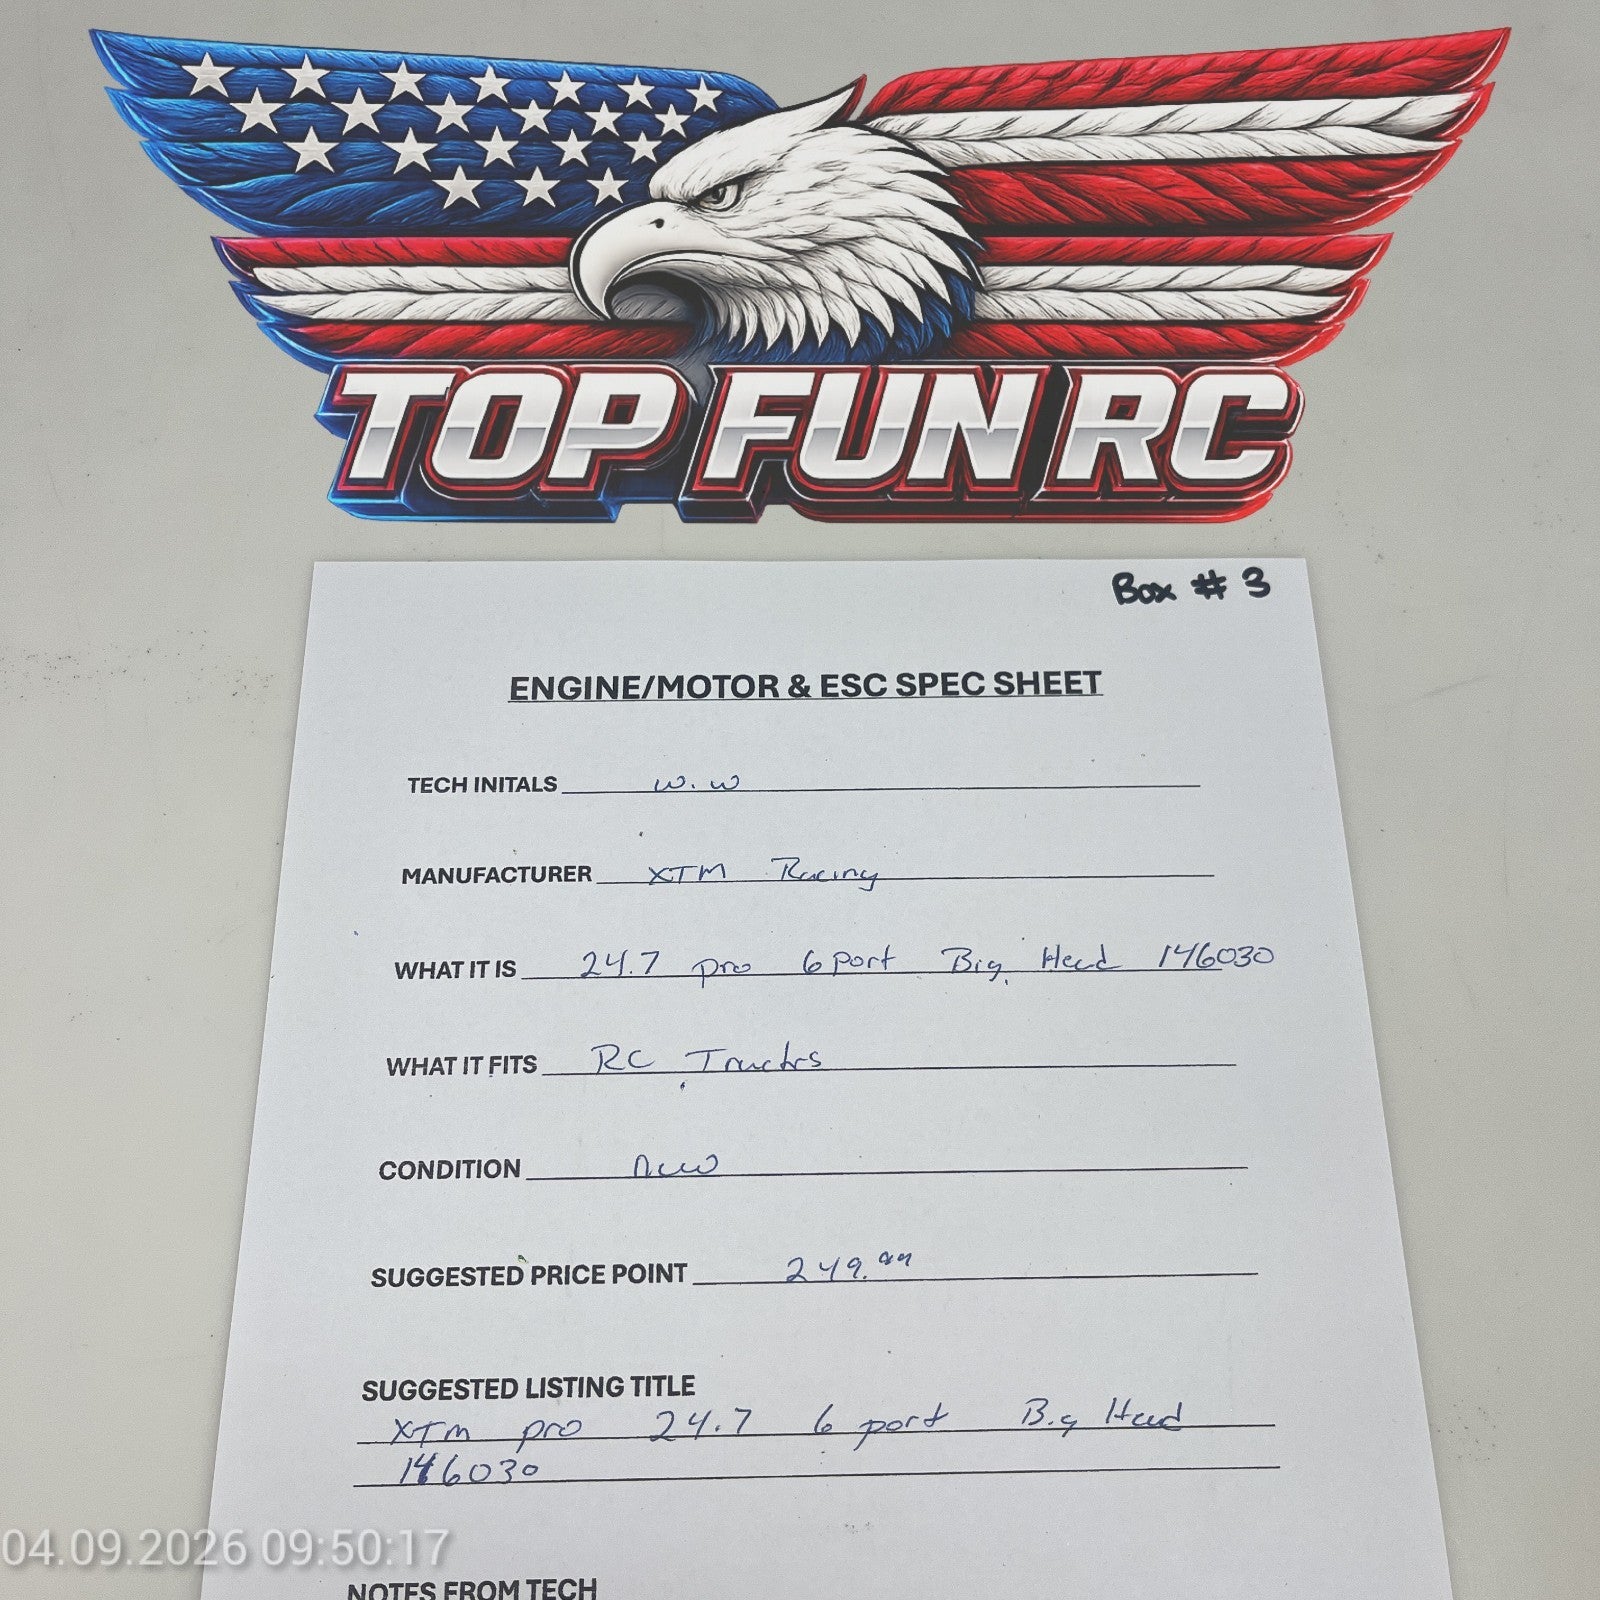 TOP FUN RC
Box # 3
ENGINE/MOTOR & ESC SPEC SHEET
TECH INITALS w.w
MANUFACTURER XTM Racing
WHAT IT IS 24.7 pro 6 port Big Head 146030
WHAT IT FITS RC Trucks
CONDITION new
SUGGESTED PRICE POINT 249.99
SUGGESTED LISTING TITLE
XTM pro 24.7 6 port Big Head
146030
04.09.2026 09:50:17
NOTES FROM TECH